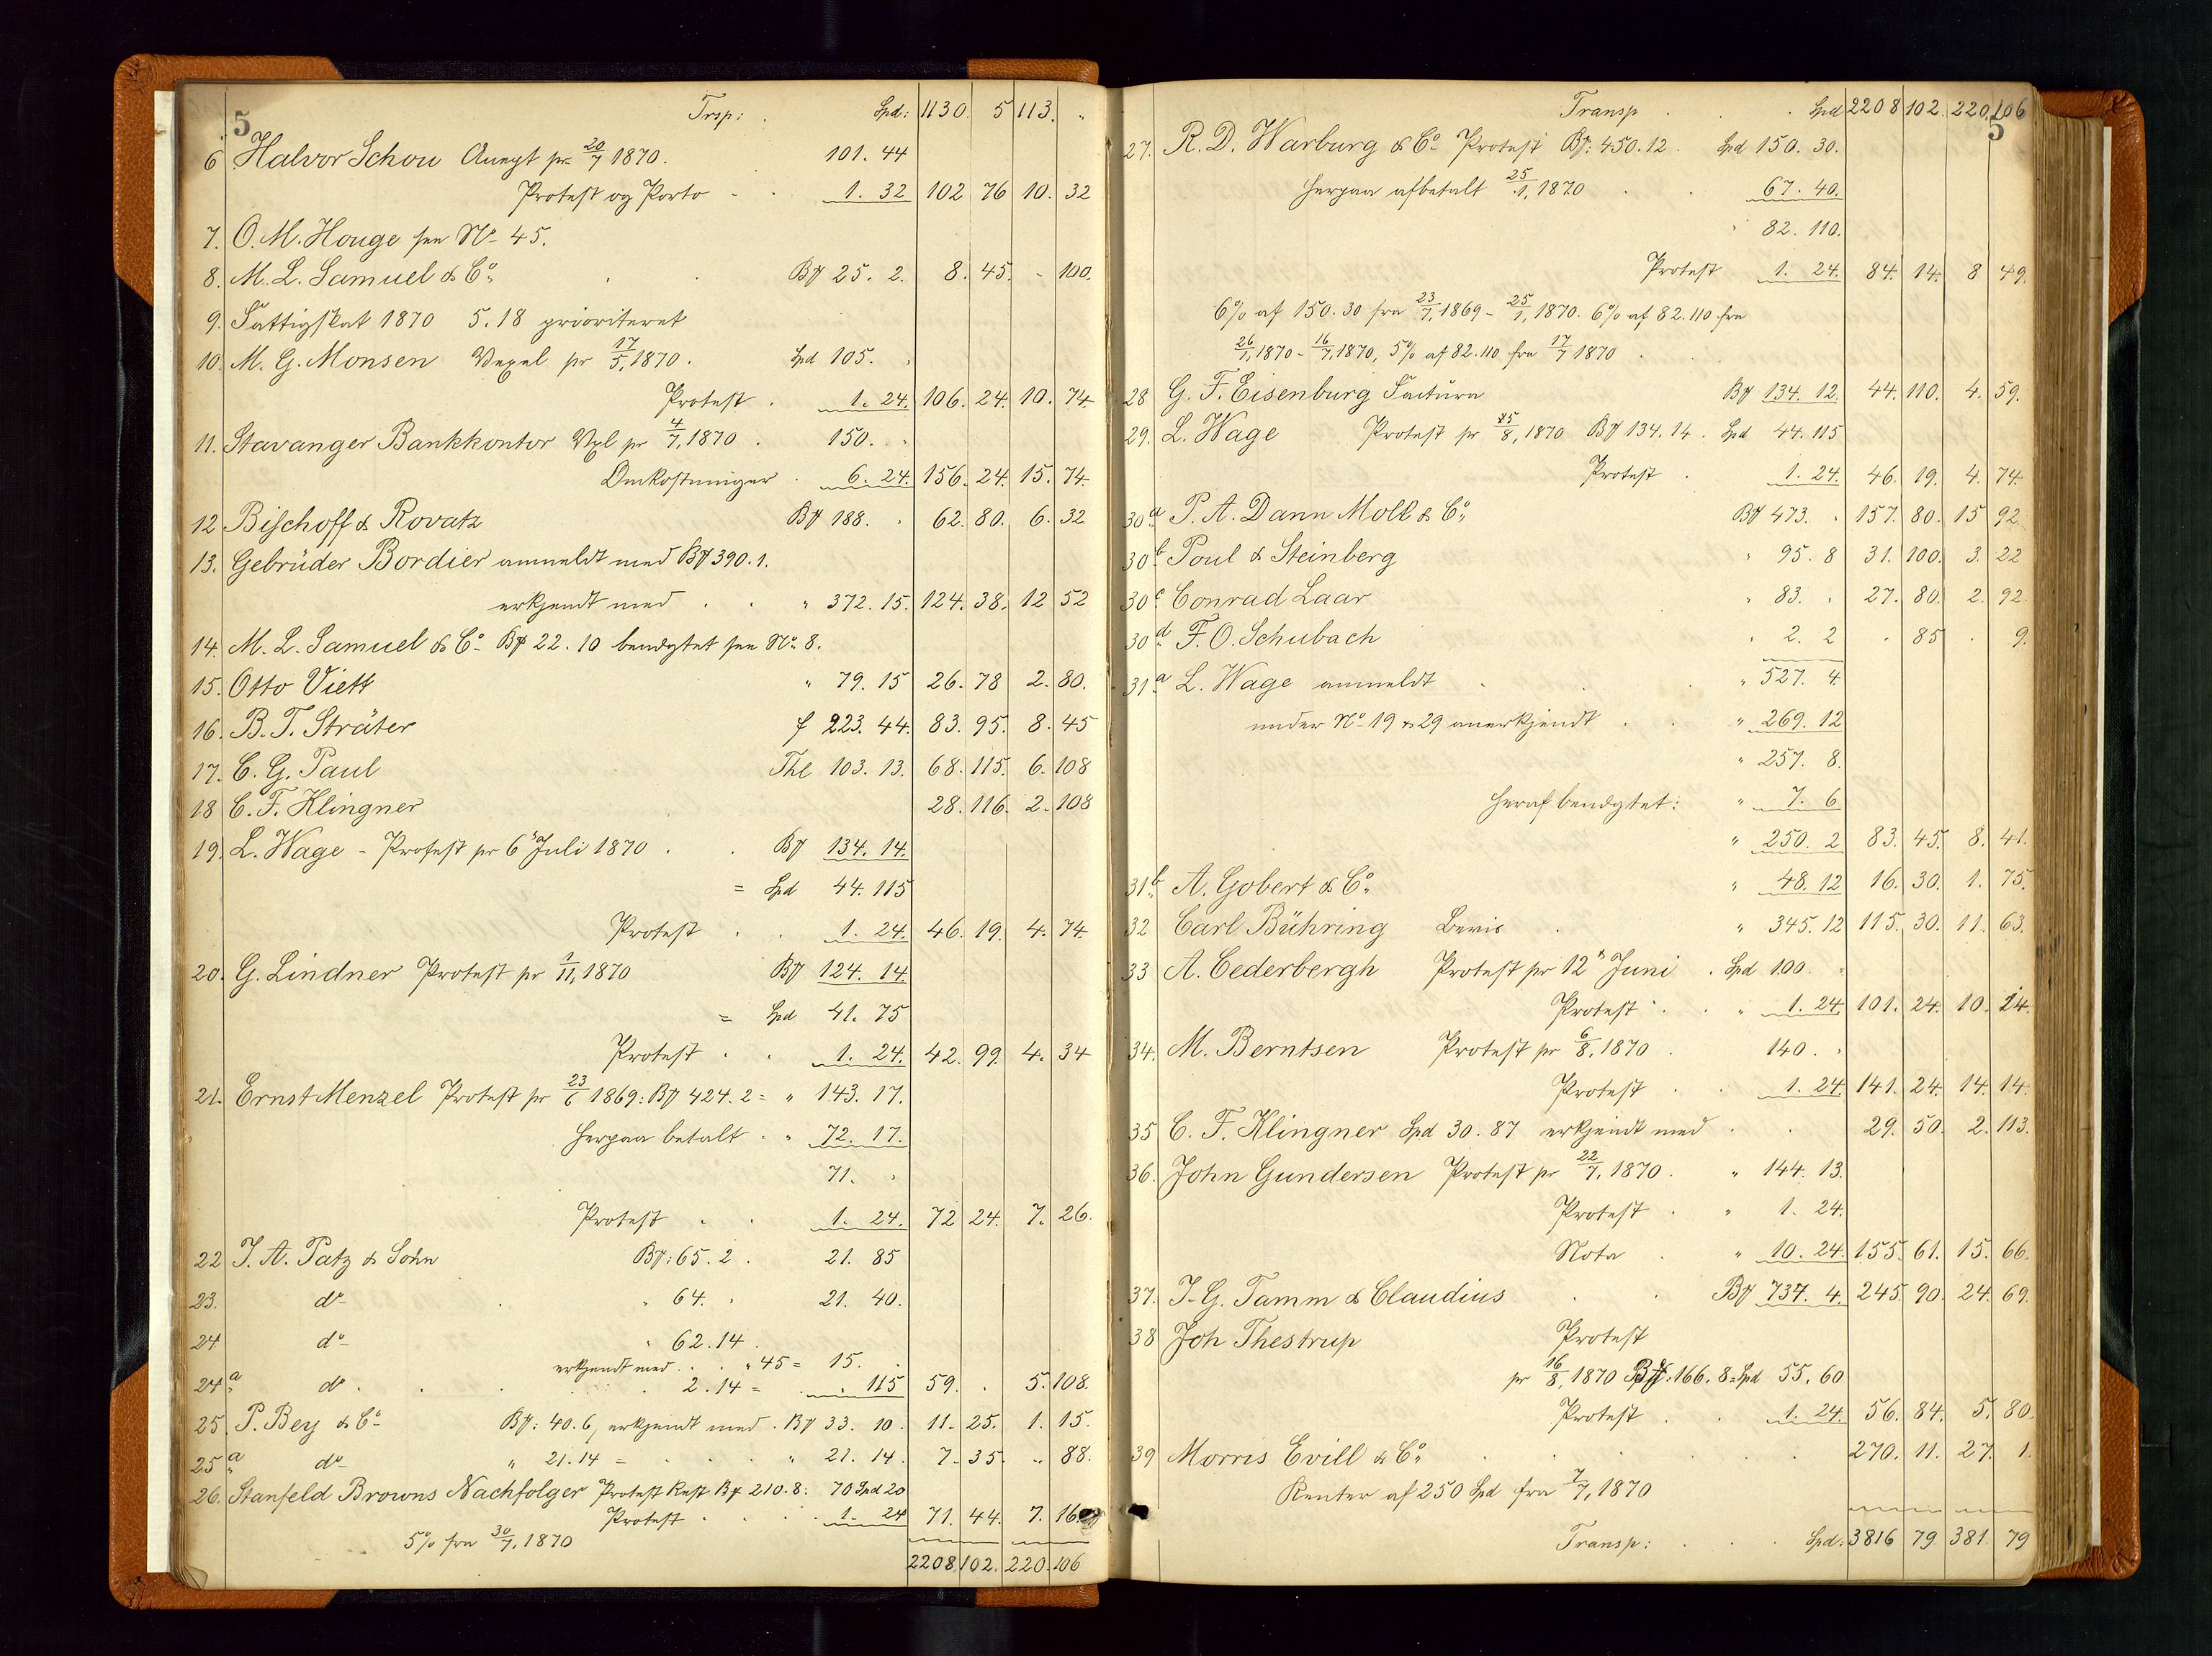 5 Trsp: . Spd: 1130. 5 113. "
6 Halvor Schou Accept pr 20/7 1870. 101. 44
Protest og Porto - . 1. 32 102 76 10. 32
7. O. M. Houge see No 45.
8. M. L. Samuel & Co. Bf 25. 2. 8. 45. - 100.
9. Fattigskat 1870 5.18 prioriteret
10. M. G. Monsen Vexel pr 17/5, 1870. Spd 105. "
Protest . 1. 24. 106. 24. 10. 74.
11. Stavanger Bankkontor Vxl pr 4/7, 1870. 150. "
Omkostninger . 6. 24. 156. 24. 15. 74.
12 Bischoff & Rovatz Bf 188. " 62. 80. 6. 32
13. Gebrüder Bordier anmeldt med Bf 390. 1.
erkjendt med . . " 372. 15. 124. 38. 12 52
14. M. L. Samuel & Co. Bf 22. 10 benyttet see No. 8.
15. Otto Viett " 79. 15 26. 78 2. 80.
16. B. T. Sträter f 223. 44. 83. 95. 8. 45
17. C. G. Paul Thl 103. 13. 68. 115. 6. 108
18 C. F. Klingner 28. 116. 2. 108
19. L. Wage - Protest pr 6" Juli 1870 . . Bf 134. 14.
= Spd 44. 115
Protest . . 1. 24. 46. 19. 4. 74.
20. G. Lindner Protest pr 1/11, 1870 Bf 124. 14.
= Spd 41. 75
Protest . . 1. 24. 42. 99. 4. 34
21. Ernst Menzel Protest pr 23/6 1869: Bf 424. 2 = " 143. 17.
herpaa betalt . " 72. 17.
71. "
Protest . . 1. 24. 72 24. 7. 26.
22 J. A. Patz & Sohn Bf: 65. 2 . 21. 85
23. do " 64. " 21. 40.
24 do " 62. 14
erkjendt med . . " 45 = 15. .
24 a do . . 2. 14 = . " 115 59. . 5. 108.
25. P. Bey & Co Bf: 40. 6, erkjendt med . Bf 33. 10. 11. 25. 1. 15.
25 a do " 21. 14 = . . " 21. 14. 7. 35. " 88.
26. Stanfeld Browns Nachfolger Protest Rest Bf 210. 8: 70 Spd 20
Protest . . . 1. 24 71. 44. 7. 16
5% fra 30/7, 1870
2208. 102. 220. 106
Transp . . Spd 2208 102. 220 106
5
27. R. D. Warburg & Co. Protest Bf: 450. 12. Spd 150. 30.
herpaa afbetalt 25/1, 1870 . . 67. 40.
" 82. 110.
Protest 1. 24. 84. 14. 8 49.
6% af 150. 30 fra 23/7, 1869 - 25/1, 1870. 6% af 82. 110 fra
26/1, 1870 - 16/7, 1870, 5% af 82. 110 fra 17/7 1870 .
28 G. F. Eisenburg Factura Bf 134. 12. 44. 110. 4. 59.
29. L. Wage Protest pr 25/8, 1870 Bf 134. 14. Spd 44. 115
Protest . 1. 24. 46. 19. 4. 74.
30 a P. A. Dann Moll & Co. Bf 473. " 157. 80. 15 92.
30 b Poul & Steinberg " 95. 8 31. 100. 3. 22
30 c Conrad Laar " 83. " 27. 80. 2. 92.
30 d F. O. Schubach " 2. 2 " 85 . 9.
31 a L. Wage anmeldt . . " 527. 4.
under No 19 & 29 anerkjendt . . " 269. 12
" 257. 8.
heraf benyttet: " 7. 6
" 250. 2 83. 45. 8. 41.
31 b A. Gobert & Co. " 48. 12 16. 30. 1. 75.
32 Carl Bühring Bevis . " 345. 12 115. 30. 11. 63.
33 A. Cederbergh Protest pr 12" Juni . Spd 100. "
Protest . . " 1. 24. 101. 24. 10. 14.
34. M. Berntsen Protest pr 6/8, 1870 . 140. "
Protest . . 1. 24. 141. 24. 14. 14.
35 C. F. Klingner Spd 30. 87 erkjendt med . . 29. 50. 2. 113.
36. John Gundersen Protest pr 22/7, 1870. " 144. 13.
Protest . " 1. 24.
Nota . " 10. 24. 155. 61. 15. 66.
37. J. G. Tamm & Claudius . . Bf 737. 4. 245 90. 24. 69.
38 Joh Thestrup Protest
pr 16/8, 1870 Bf. 166. 8 = Spd 55. 60
Protest . . 1. 24. 56. 84. 5. 80.
39 Morris Evill & Co. . . . 270. 11. 27. 1.
Renter af 250 Spd fra 7/7, 1870
Transp: . . Spd: 3816 79 381. 79